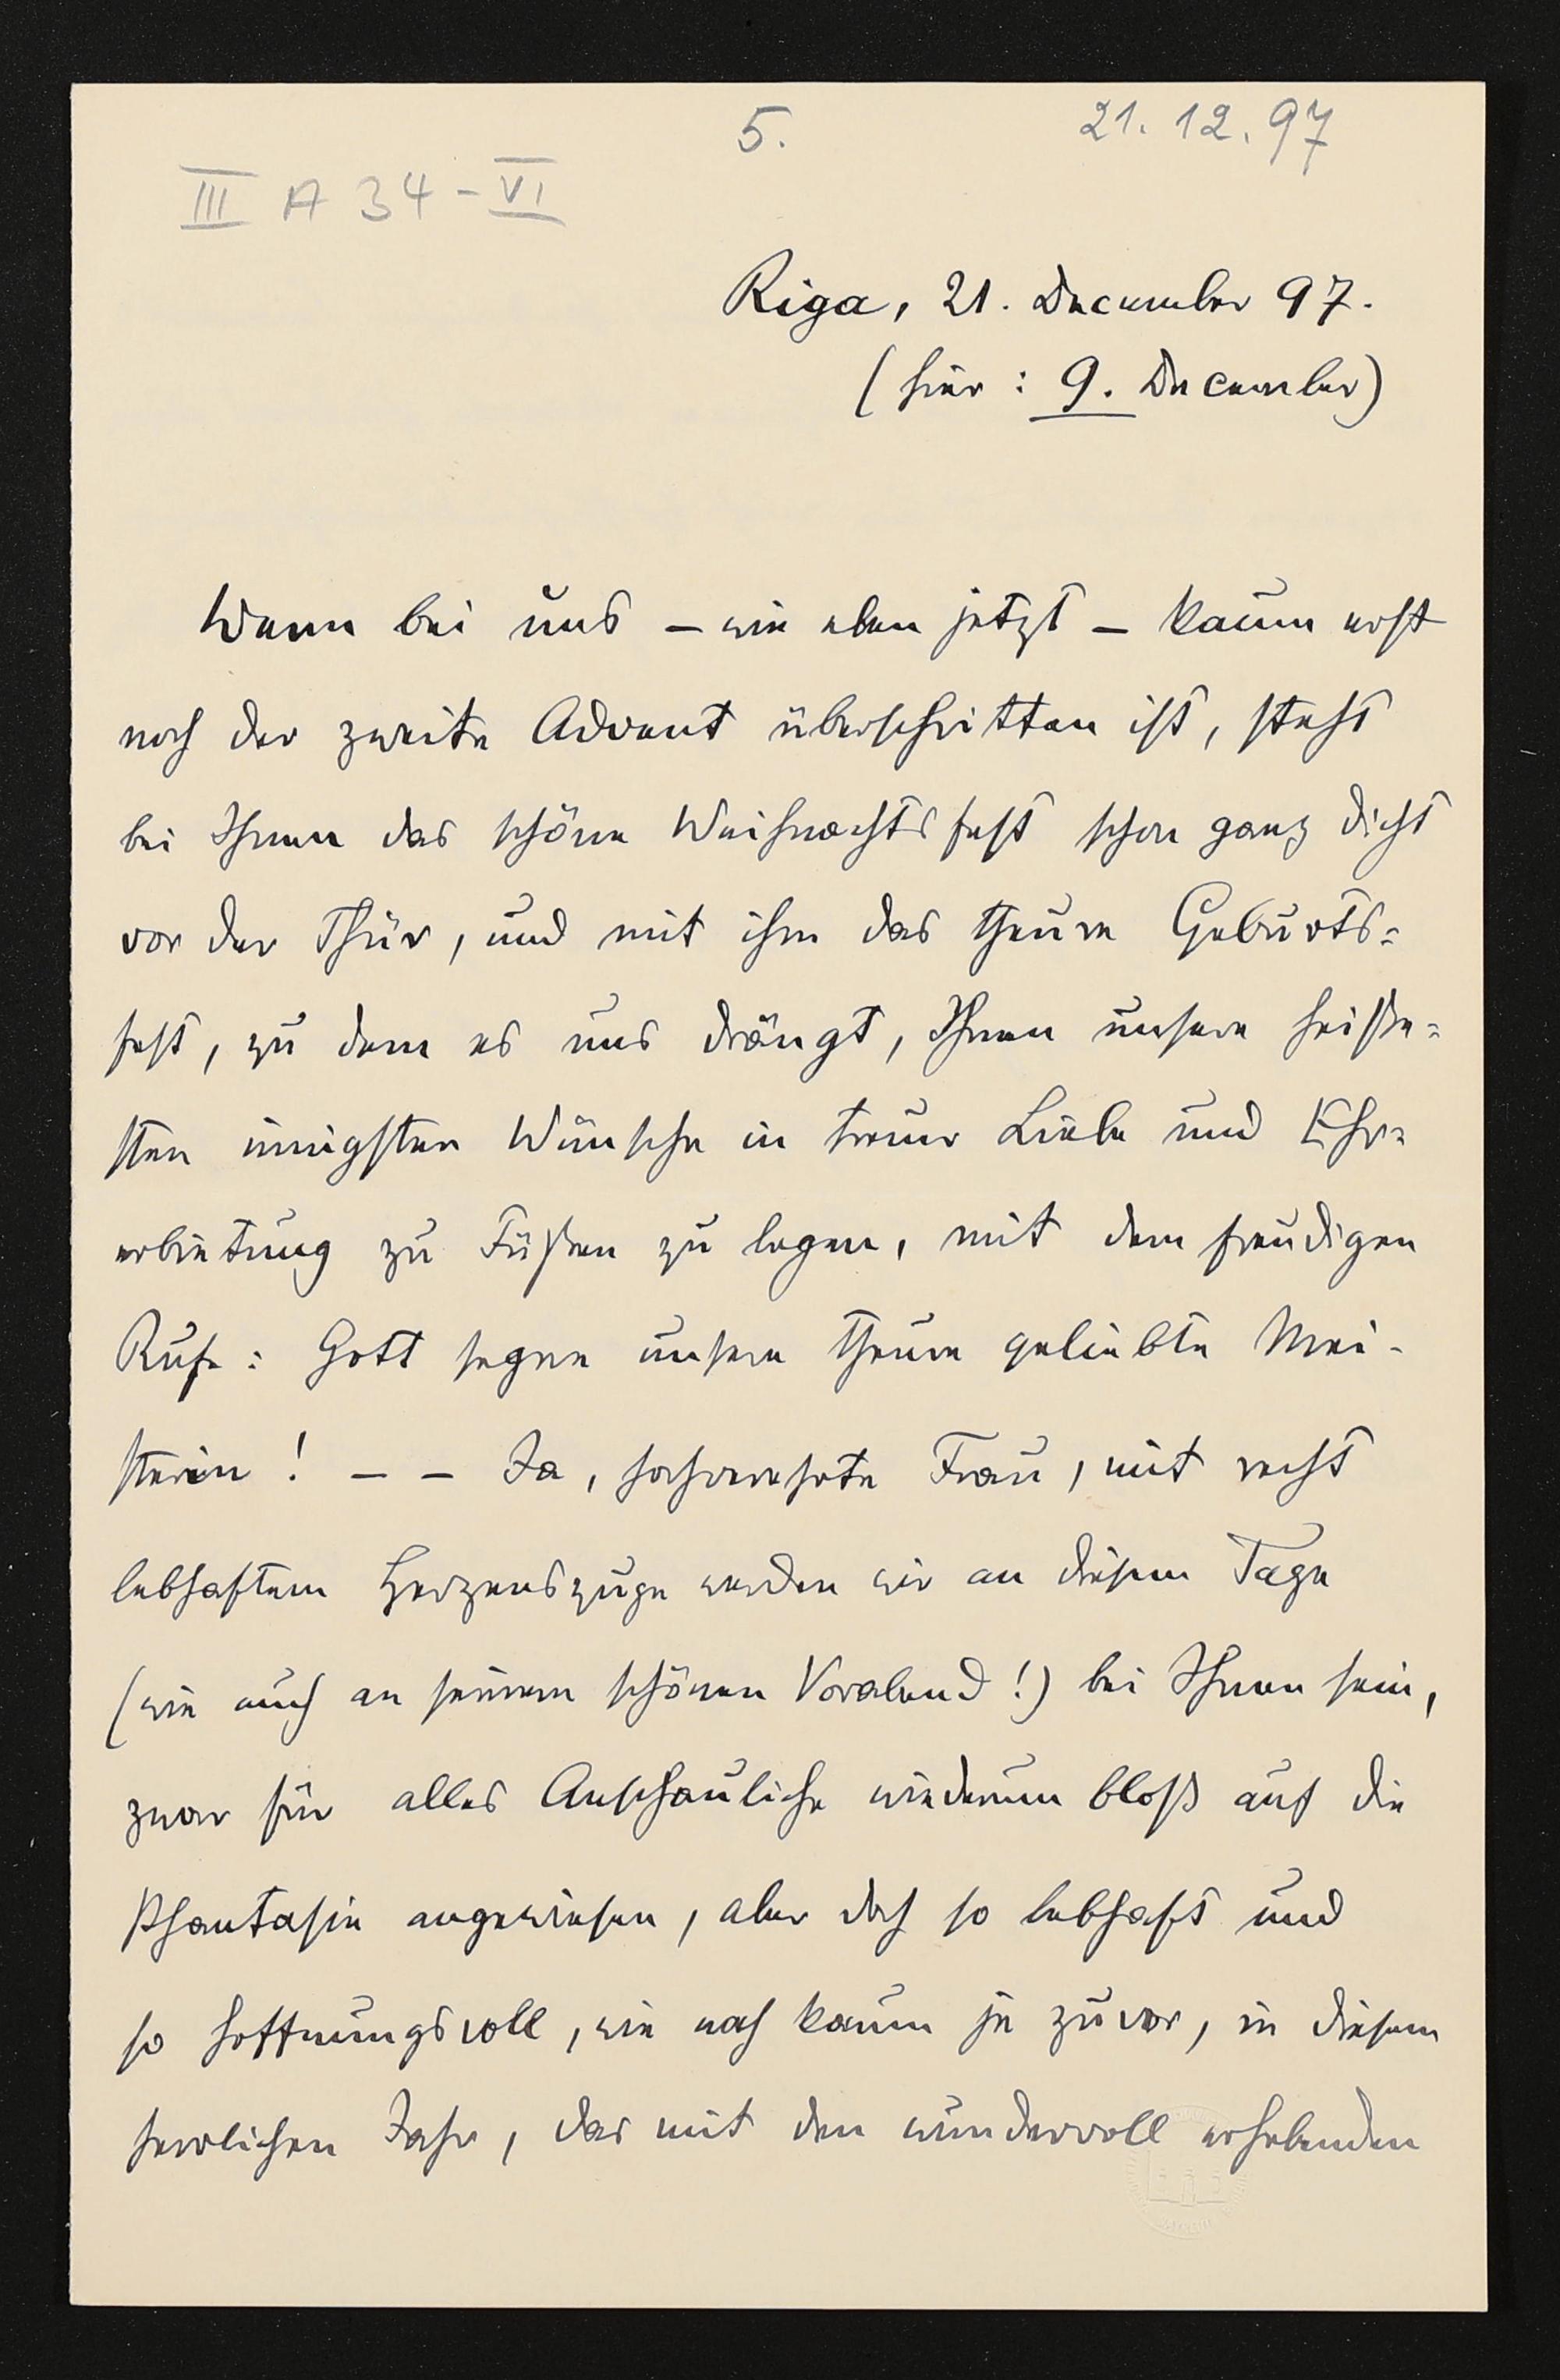 5.
21. 12. 97
III A 34-VI
Riga, 21. December 97.
(hier: 9. December)
Wenn bei uns – wie eben jetzt – kaum erst
noch der zweite Advent überschritten ist, steht
bei Ihnen das schöne Weihnachtsfest schon ganz dicht
vor der Thür, und mit ihm das theure Geburts=
fest, zu dem es uns drängt, Ihnen unsere heiße=
sten innigsten Wünsche in treuer Liebe und Ehr=
erbietung zu Füßen zu legen, mit dem freudigen
Rufe: Gott segne unsere theure geliebte Mei-
sterin! – – Ja, hochverehrte Frau, mit recht
lebhaftem Herzenszuge werden wir an diesem Tage
(wie auch an seinem schönen Vorabend!) bei Ihnen sein,
zwar für alles Anschauliche wiederum bloß auf die
Phantasie angewiesen, aber doch so lebhaft und
so hoffnungsvoll, wie noch kaum je zuvor, in diesem
herrlichen Jahr, das mit den wundervoll erhebenden